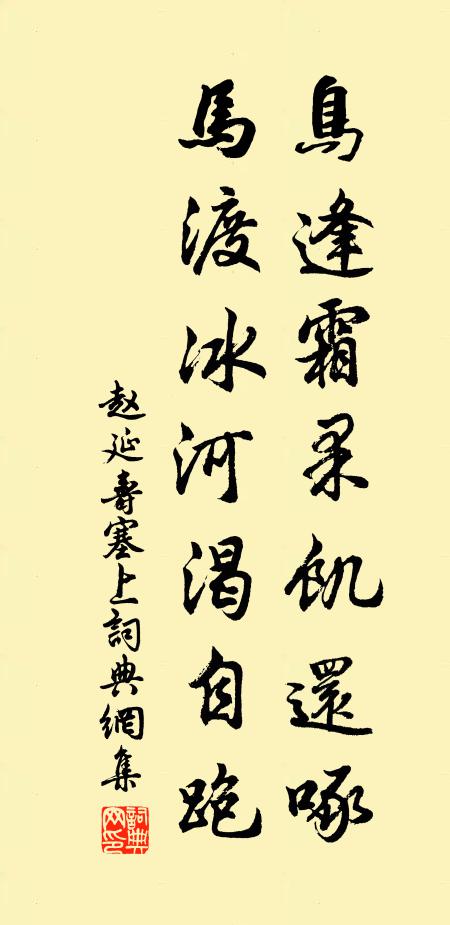 鳥逢霜果飢還啄
馬渡冰河渴自跑
趙延壽塞上詞典網集
詞典网印